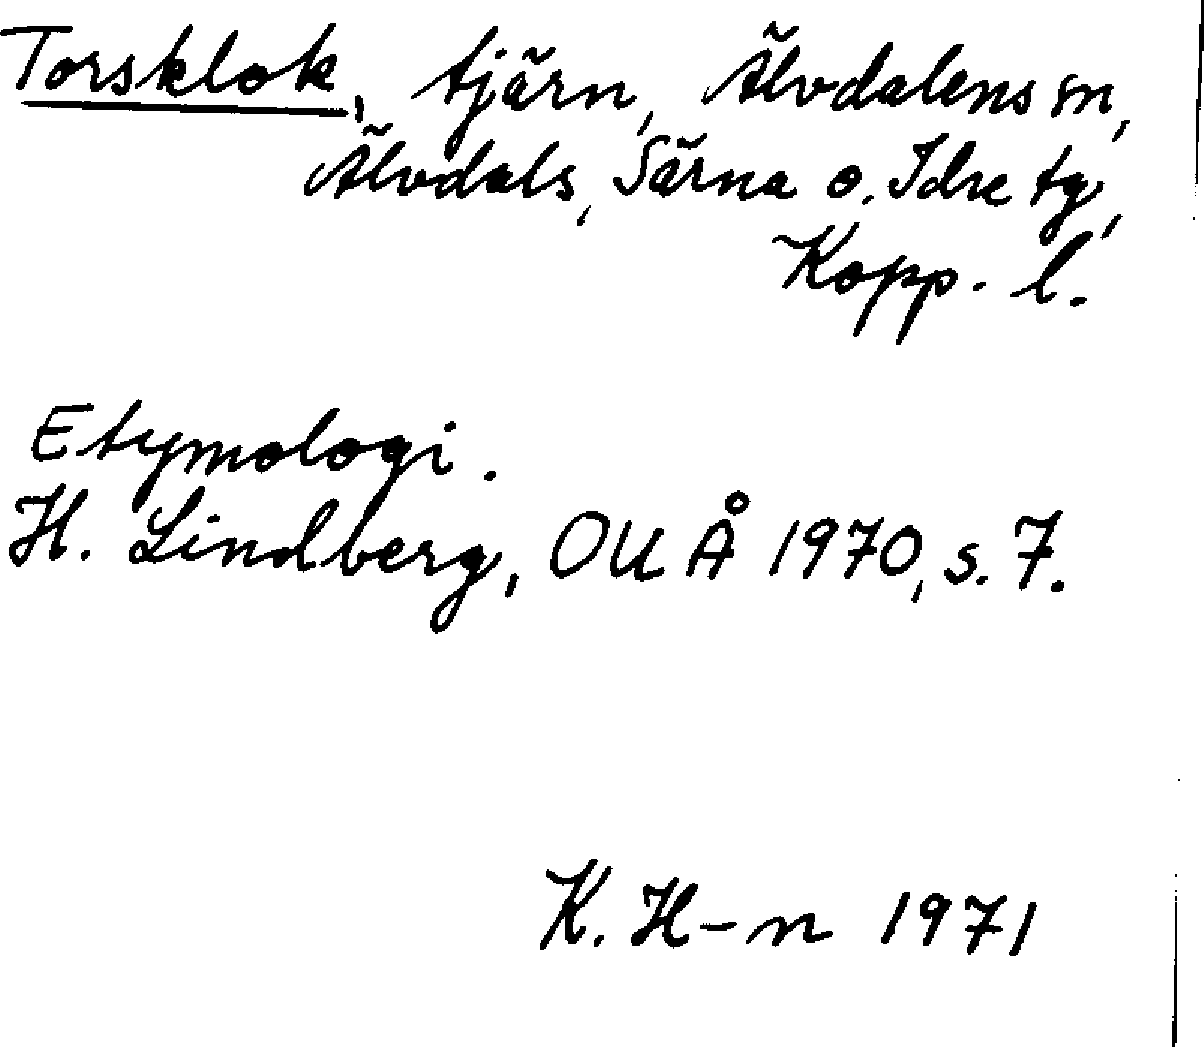 Torsklok, tjärn, Älvdalens sn,
Älvdals, Särna o. Idre tg,
Kopp. l.
Etymologi.
H. Lindberg, OUÅ 1970, s. 7.
K. H-n 1971